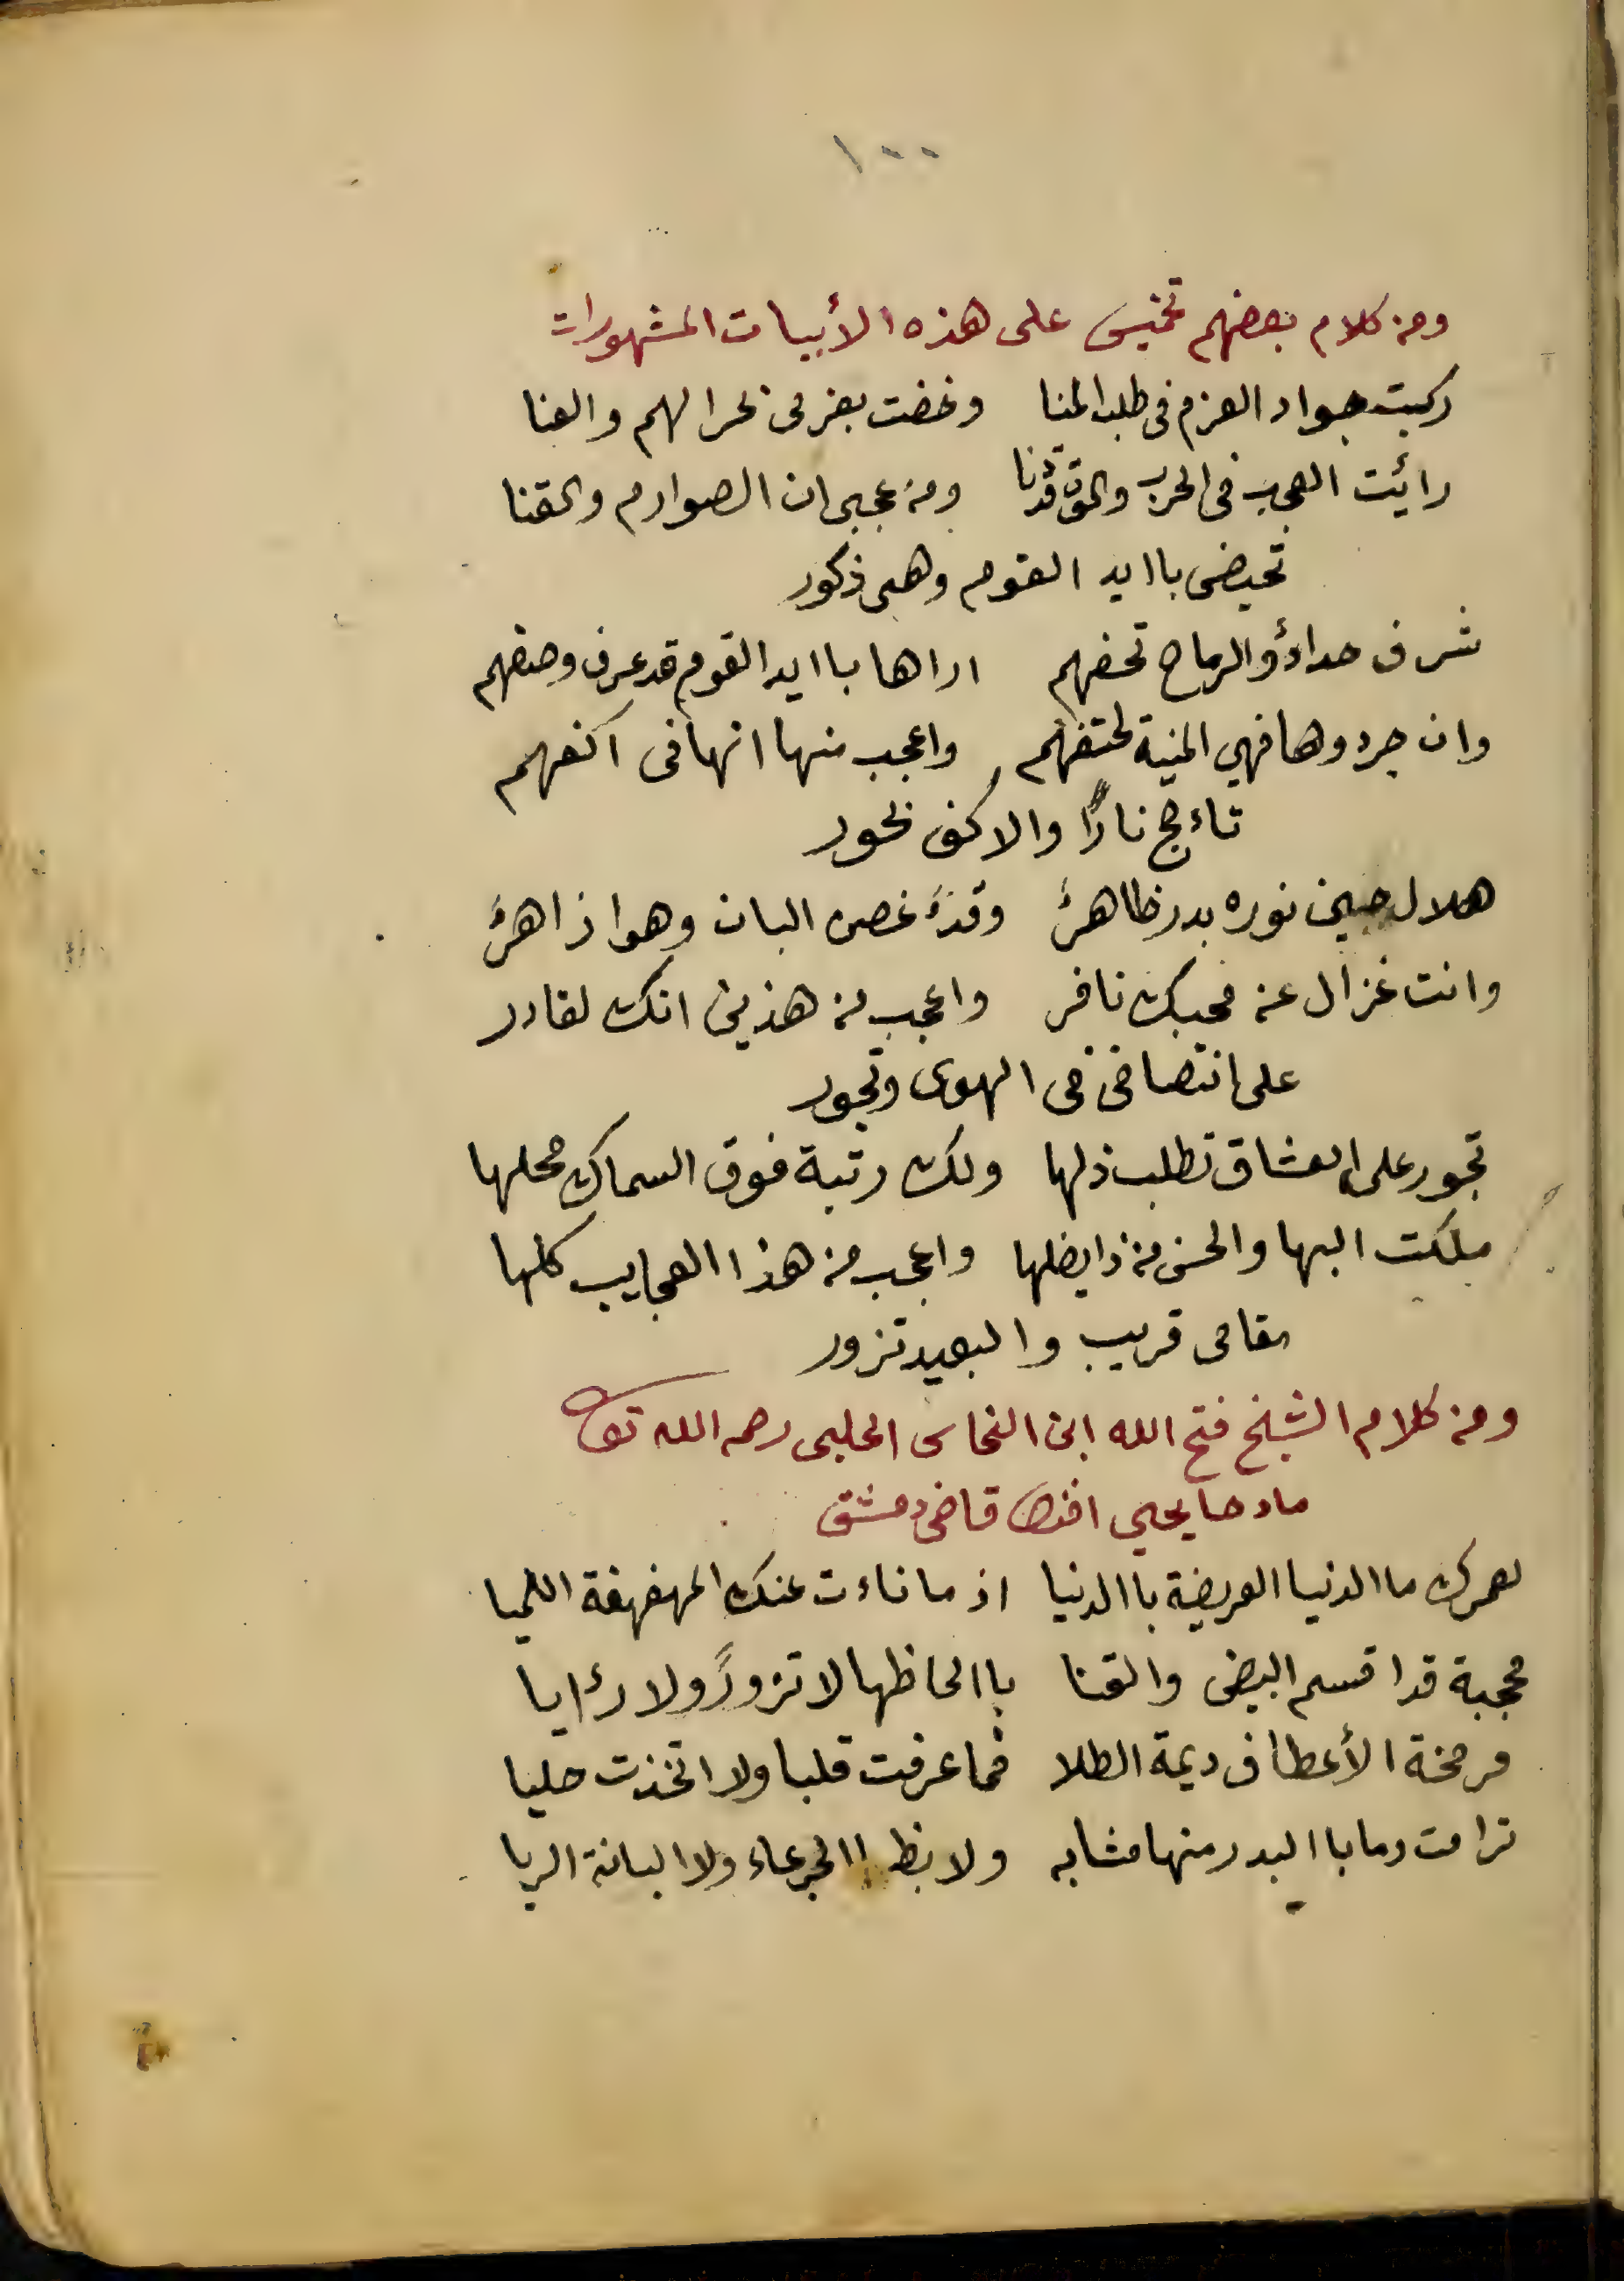 ١٠٠
ومن كلام بعضهم تخميس على هذه الأبيات المشهورات
ركبت جواد العزم فى طلب المنا وخضت بعزمى بحر الهم والعنا
رائت العجب فى الحرب والموت قد دنا ومن عجبى ان الصوارم والقنا
تحيض باايد القوم وهى ذكور
شرف حداد والرماح تحفهم اراها باايد القوم قد عرف وصفهم
وان جردوها فهي المنية لحتفهم واعجب منها انها فى اكفهم
تاءجج نارًا والاكف بحور
هلال جبين نوره بدر ظاهر وقدَّ غصن البان وهوا زاهر
وانت غزال عن محبك نافر واعجب من هذين انك لقادر
على انتصافى فى الهوى وتجور
تجور على العشاق تطلب ذلها ولك رتبة فوق السماك محلها
ملكت البها والحسن من ذا يضلها واعجب من هذا العجايب كلها
مقامى قريب والبعيد تزور
ومن كلام الشيخ فتح الله ابن النحاس الحلبى رحمه الله تعالى
مادحا يحيى افندى قاضى دمشق
لعمرك ما الدنيا العريضة باالدنيا اذ ما ناءت عنك المهفهفة اللميا
محجبة قد اقسم البيض والقنا باالحاظها لا تزورً ولا رءايا
مرمخة الأعطاف ديمة الطلا فما عرفت قلبا ولا اتخذت حليا
ترامت وما باالبدر منها مشابه ولا بظ االجرعاء ولا البانة الريا